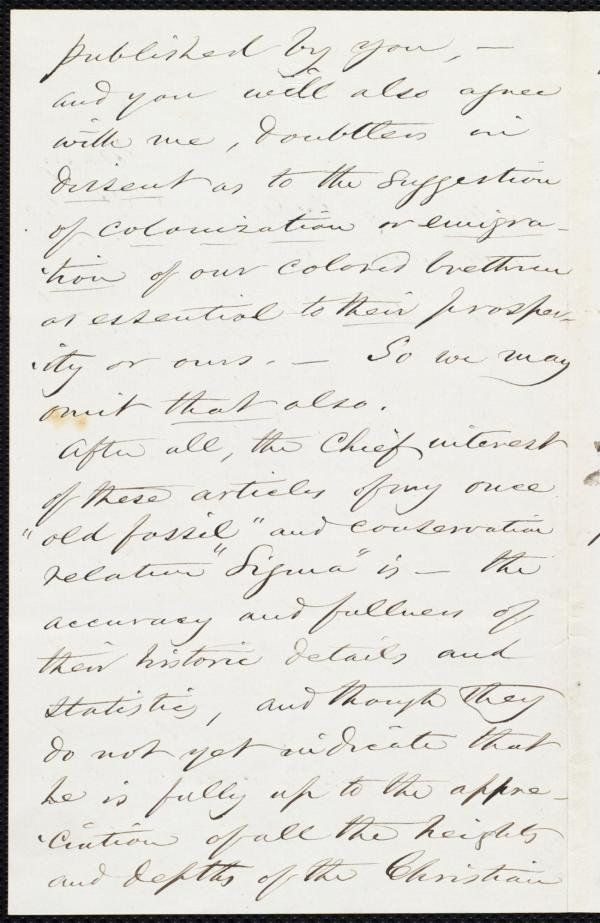 published by you, —
and you will also agree
with me, doubtless in
dissent as to the suggestion
of colonization or emigra-
-tion of our colored brethren
as essential to their prosper-
-ity or ours. — So we may
omit that also.
After all, the chief interest
of these articles of my once
"old fossil" and conservative
relative "Sigma" is — the
accuracy and fullness of
their historic details and
statistics, and though they
do not yet indicate that
he is fully up to the appre-
-ciation of all the heights
and depths of the Christian